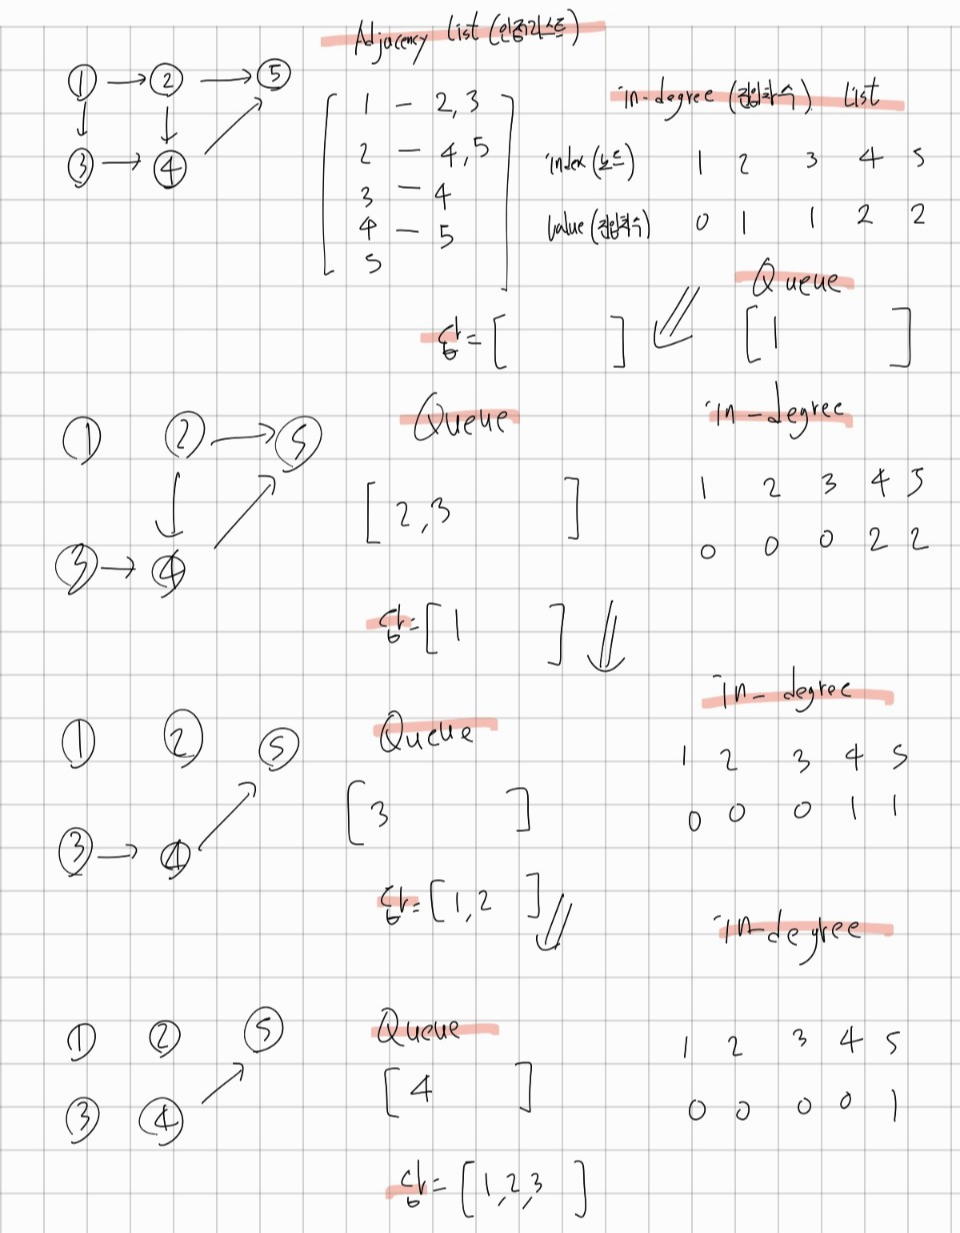 Adjacency list (인접리스트)
① → ② → ⑤
③ → ④
1 - 2,3
2 - 4,5
3 - 4
4 - 5
5
in-degree (진입차수) List
index (노드) 1 2 3 4 5
value (진입차수) 0 1 1 2 2
Queue
[1 ]
답= [ ]
① ② → ⑤
③ → ④
Queue
[2,3 ]
답= [1 ]
in-degree
1 2 3 4 5
0 0 0 2 2
① ② ⑤
③ → ④
Queue
[3 ]
답= [1,2 ]
in-degree
1 2 3 4 5
0 0 0 1 1
in-degree
① ② ⑤
③ ④
Queue
[4 ]
답= [1,2,3 ]
1 2 3 4 5
0 0 0 0 1